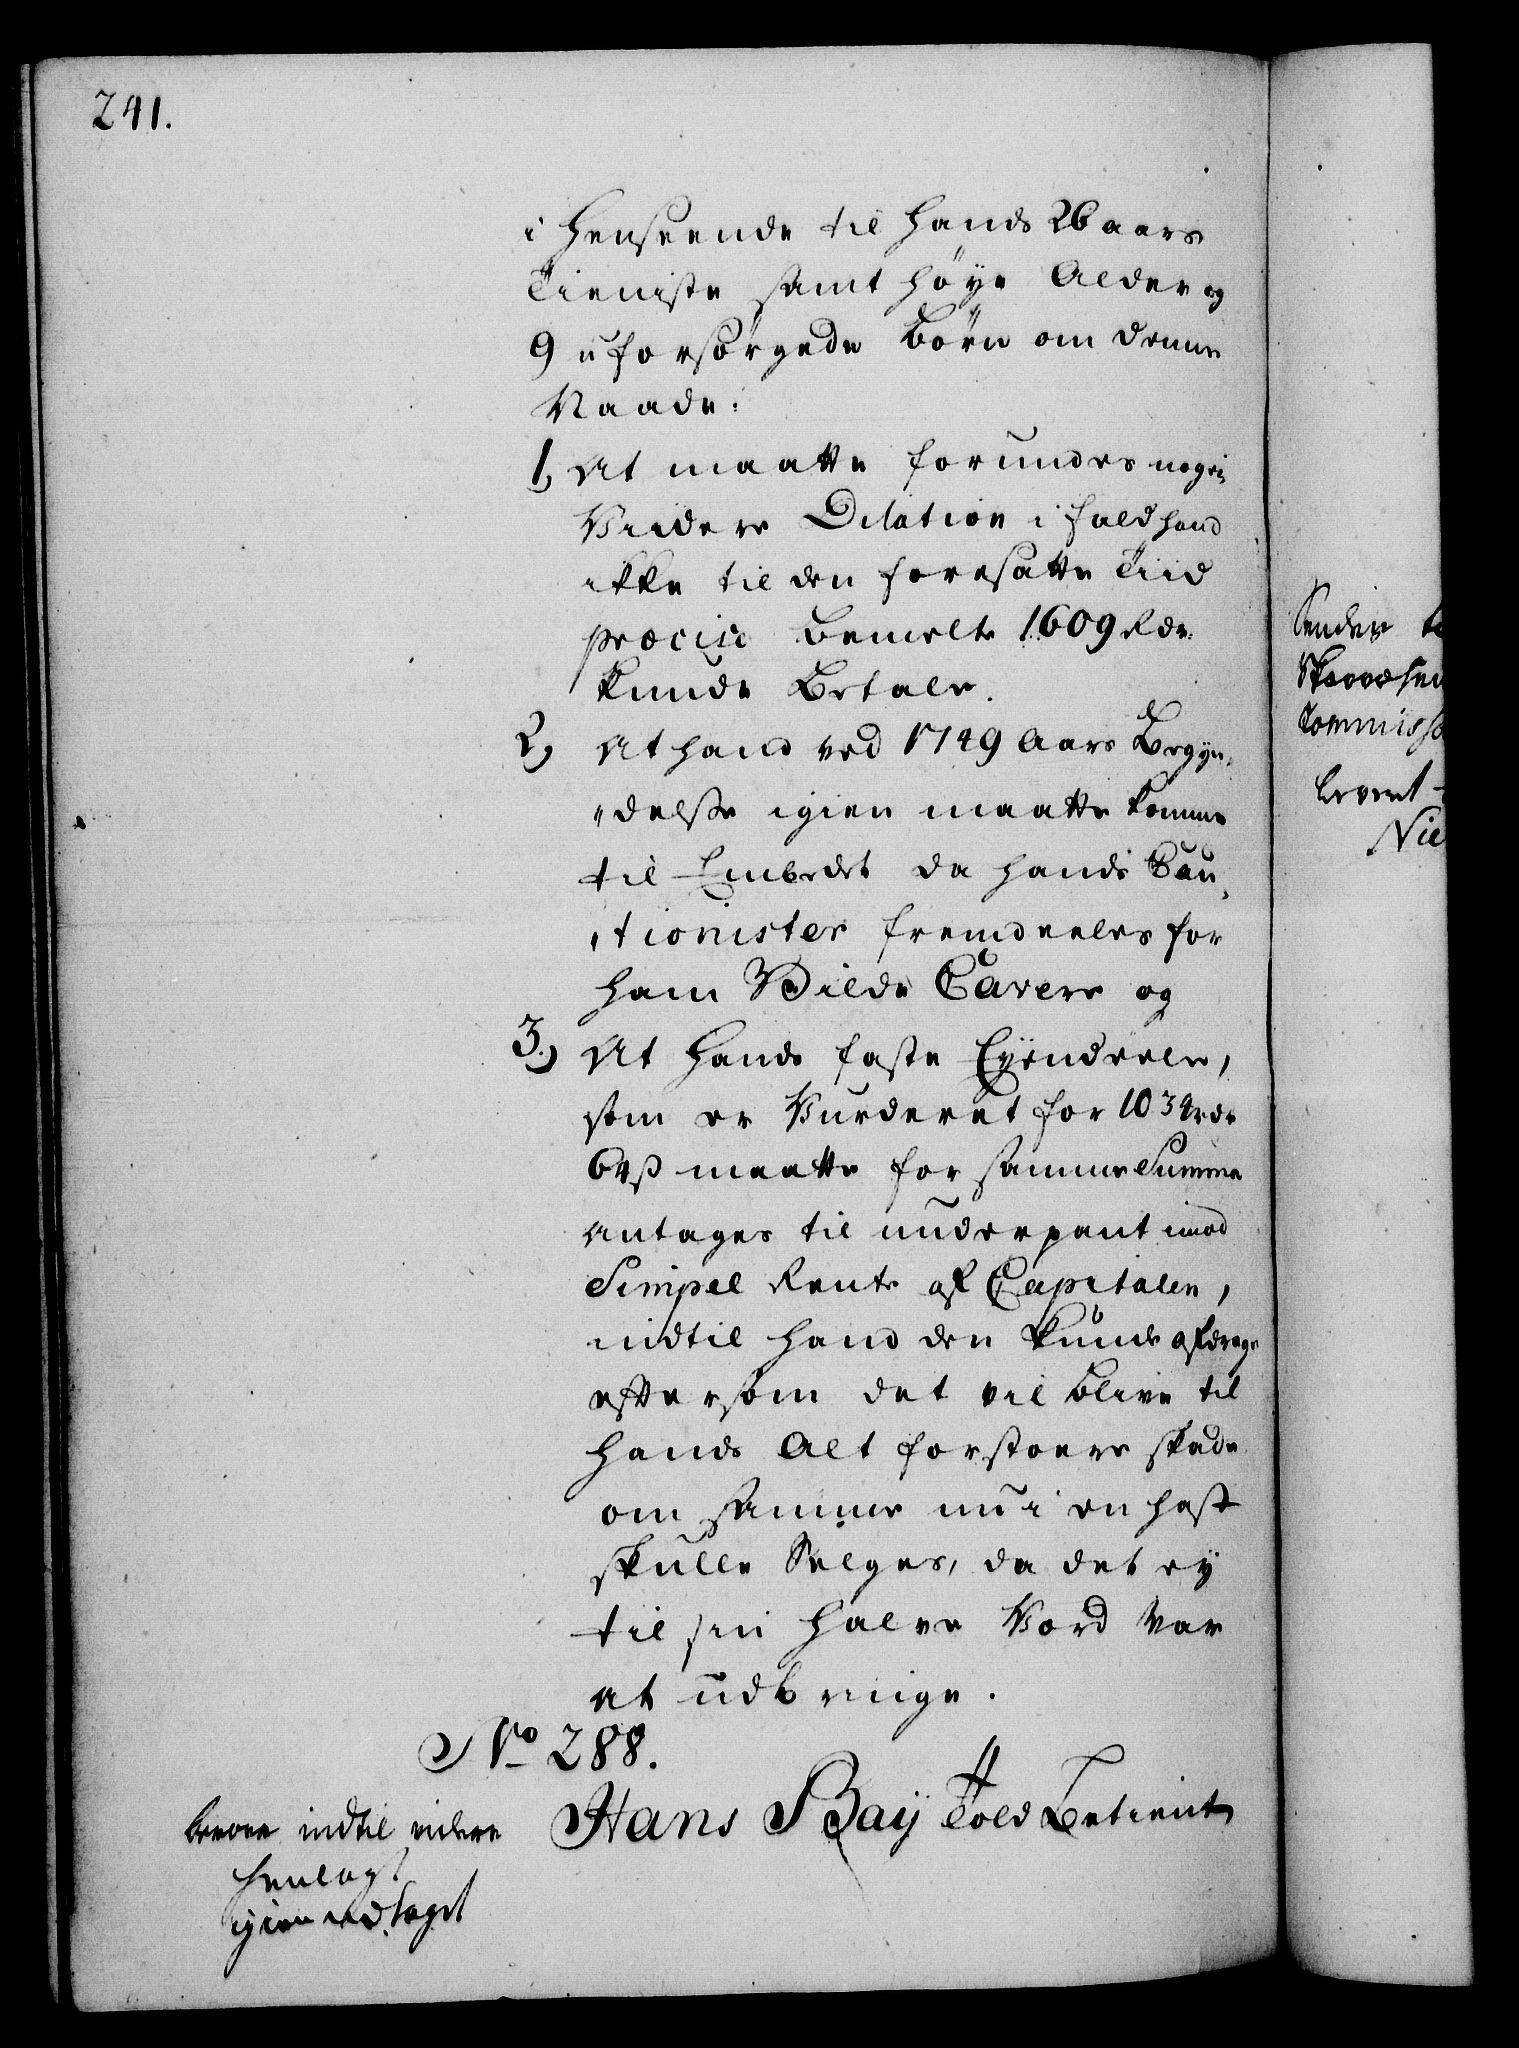 241.
i Henseende til hands 26 aars
Tieniste samt høye Alder og
9 uforsørgede Børn om denne
Naade:
1, At maatte forundes nogen
Viidere Dilation i fald hand
ikke til den foresatte Tiid
præcise bemelte 1609 Rdr.
kunde Betale.
2, At hand ved 1749 Aars Begyn„
„delsse igien maatte komme
til Embedet da hands Cau„
„tionister fremdeeles for
ham Vilde Cavere og
3.) At hands faste Eyendeele,
som er Vurderet for 1034 rdr
64 ß maatte for samme Summa
antages til underpant imod
Simpel Rente af Capitalen,
indtil hand den kunde afdrage
eftersom det vil blive til
hands Alt forstoere skade
om samme nu i en hast
skulle Selges, da det ey
til sin halve Værd var
at udbringe.
No 288.
Hans Baij Told Betient
beroer indtil videre
henlagt
igien udtaget
Sender
Commisso
levert
Nie